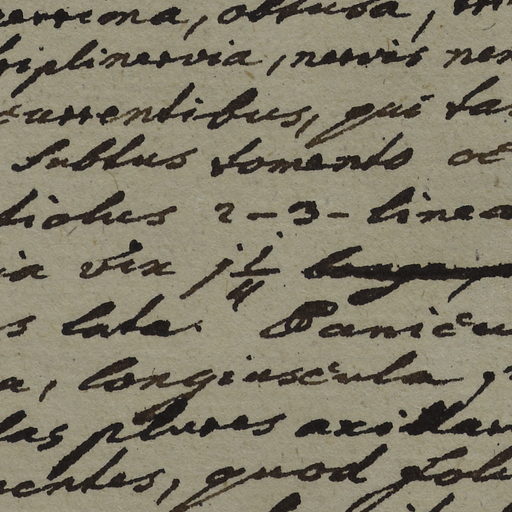 errima, obtusa,
triplinervia, nervis
currentibus, qui
subtus tomento
tiolus 2-3- linea
ia vix j 1/4
s lata. Panicu
a, longiuscula,
las plures axillar
entes, quod foli